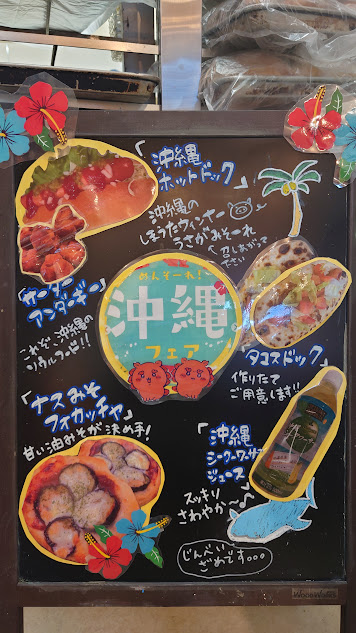 「沖縄
ホットドック」
沖縄の
しまうたウィンナー
うさがみそーれ
召しあがって
ください
「サーター
アンダーギー」
これぞ沖縄の
ソウルフード!!
めんそーれ!
沖縄
フェア
「タコスドック」
作りたて
ご用意します!!
「ナスみそ
フォカッチャ」
甘い油みそが決め手!
「沖縄
シークワーサー
ジュース」
スッキリ
さわやか〜♪
じんべい
ざめです。。。
WoodWorks